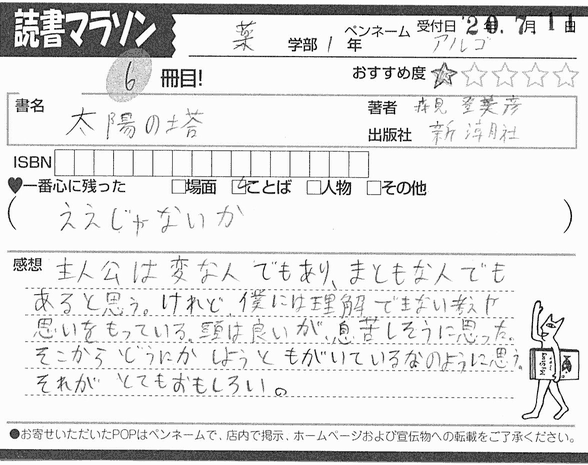 読書マラソン
薬 学部 1 年 ペンネーム アルゴ 受付日 '20.7月11日
6 冊目! おすすめ度 ★☆☆☆☆
書名 太陽の塔
著者 森見登美彦
出版社 新潮社
ISBN
♥一番心に残った □場面 ☑ことば □人物 □その他
( ええじゃないか )
感想 主人公は変な人でもあり、まともな人でも
あると思う。けれど、僕には理解できない考えや
思いをもっている。頭は良いが、息苦しそうに思った。
そこからどうにかしようともがいているなのように思う。
それがとてもおもしろい。
●お寄せいただいたPOPはペンネームで、店内で掲示、ホームページおよび宣伝物への転載をご了承ください。